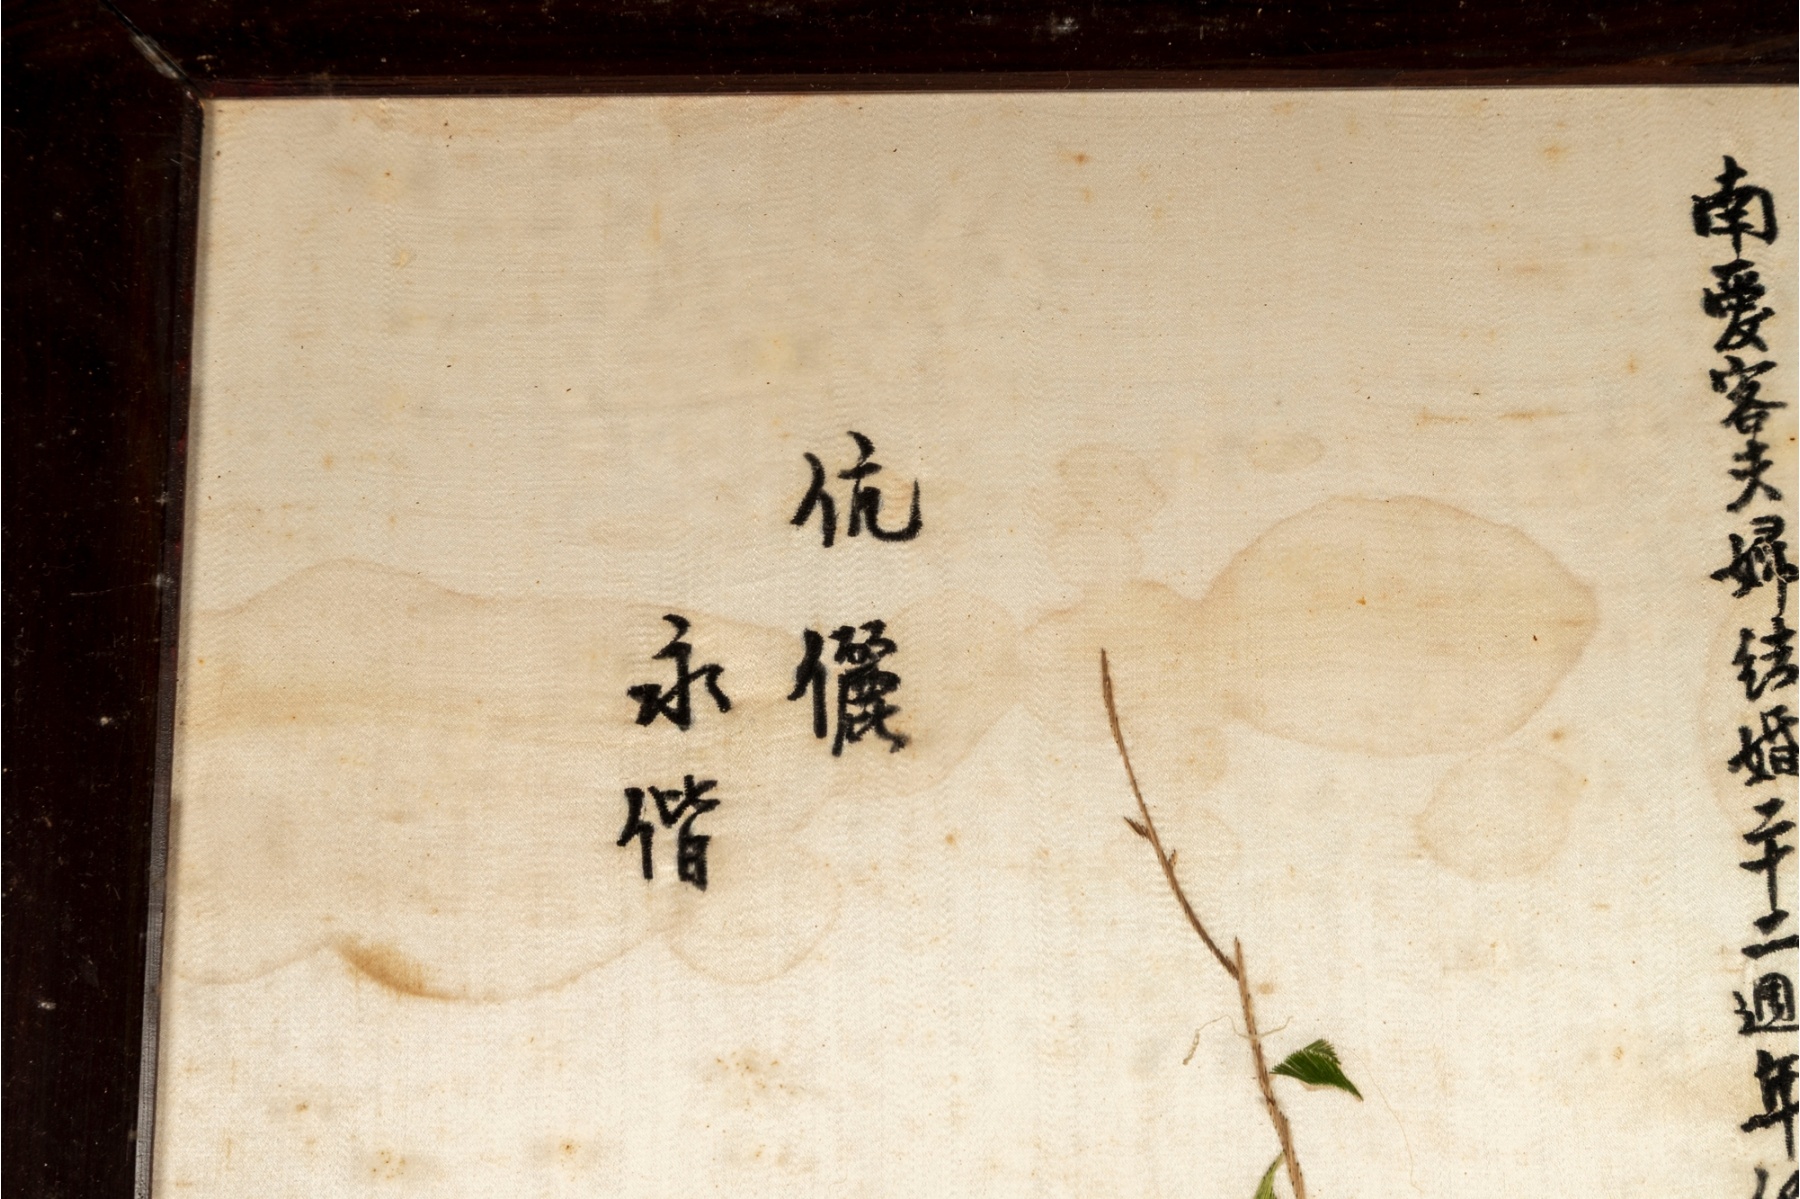 南愛客夫婦結婚二十二週年
伉儷
永偕